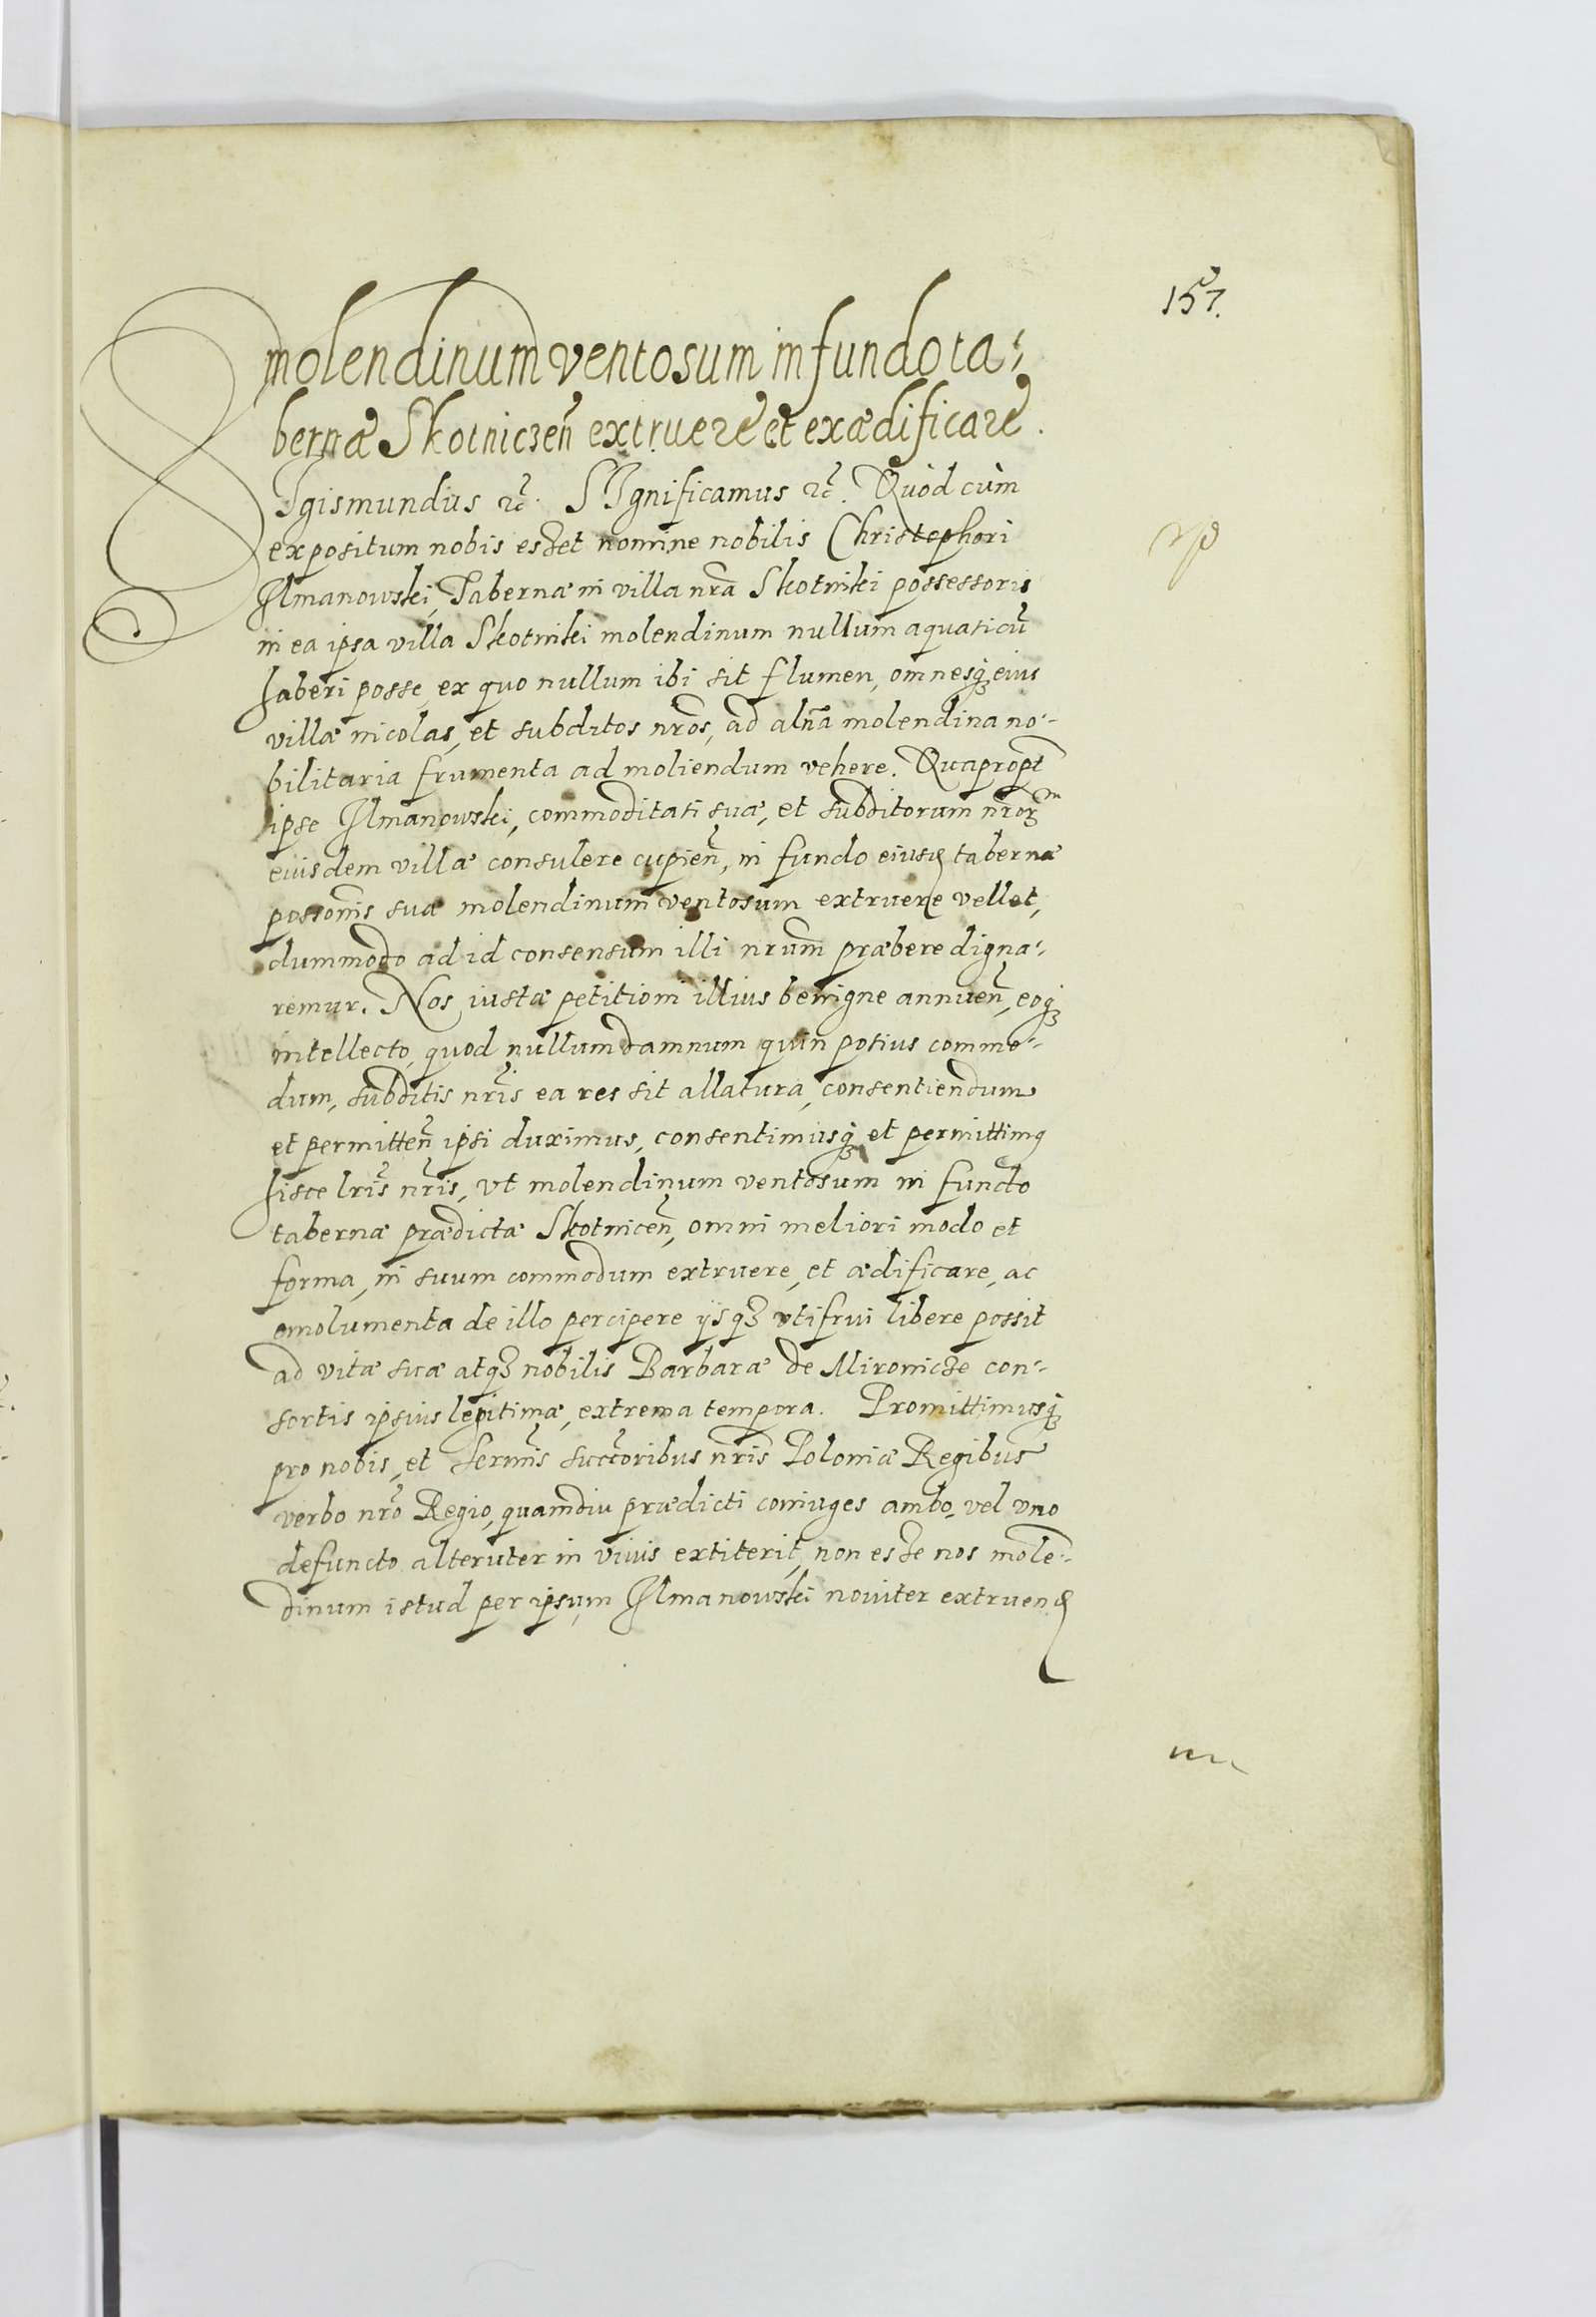 157.
molendinum ventosum in fundo ta-
bernæ Skotniczen̄ extruere et exædificare.
SIgismundus ꝛc̃. SIgnificamus ꝛc̃. Quòd cùm
expositum nobis esset nomine nobilis Christophori
Ilmanowski, Tabernæ in villa nr̃a Skotniki possessoris
in ea ipsa villa Skotniki molendinum nullum aquaticũ
haberi posse, ex quo nullum ibi sit flumen, omnesqꝫ eius
villæ incolas, et subditos nr̃os, ad aln̄a molendina no-
bilitaria frumenta ad moliendum vehere. Quapropt̃
ipse Ilmanowski, commoditati suæ, et subditorum nr̃oꝝ
eiusdem villæ consulere cupien̄, in fundo eiusd̃ tabernæ
posso͠nis suæ molendinum ventosum extruere vellet,
dummodo ad id consensum illi nr̃um præbere digna-
remur. Nos iustæ petitioni illius benigne annuen̄, eoqꝫ
intellecto, quod nullum damnum quin potius commo-
dum, subditis nr̃is ea res sit allatura, consentiendum
et permitten̄ ipsi duximus, consentimusqꝫ et permittimꝯ
hisce lr̃is nr̃is, vt molendinum ventosum in fundo
tabernæ prædictæ Skotnicen̄, omni meliori modo et
forma, in suum commodum extruere, et ædificare, ac
emolumenta de illo percipere ijsqꝫ vtifrui libere possit
ad vitæ suæ atqꝫ nobilis Barbaræ de Mironicze con-
sortis ipsius legitimæ, extrema tempora. Promittimusqꝫ
pro nobis, et Serm̃is succ̃oribus nr̃is Poloniæ Regibus
verbo nr̃o Regio, quamdiu prædicti coniuges ambo, vel vno
defuncto alteruter in viuis extiterit, non esse nos molen-
dinum istud per ipsum Ilmanowski nouiter extruend̃